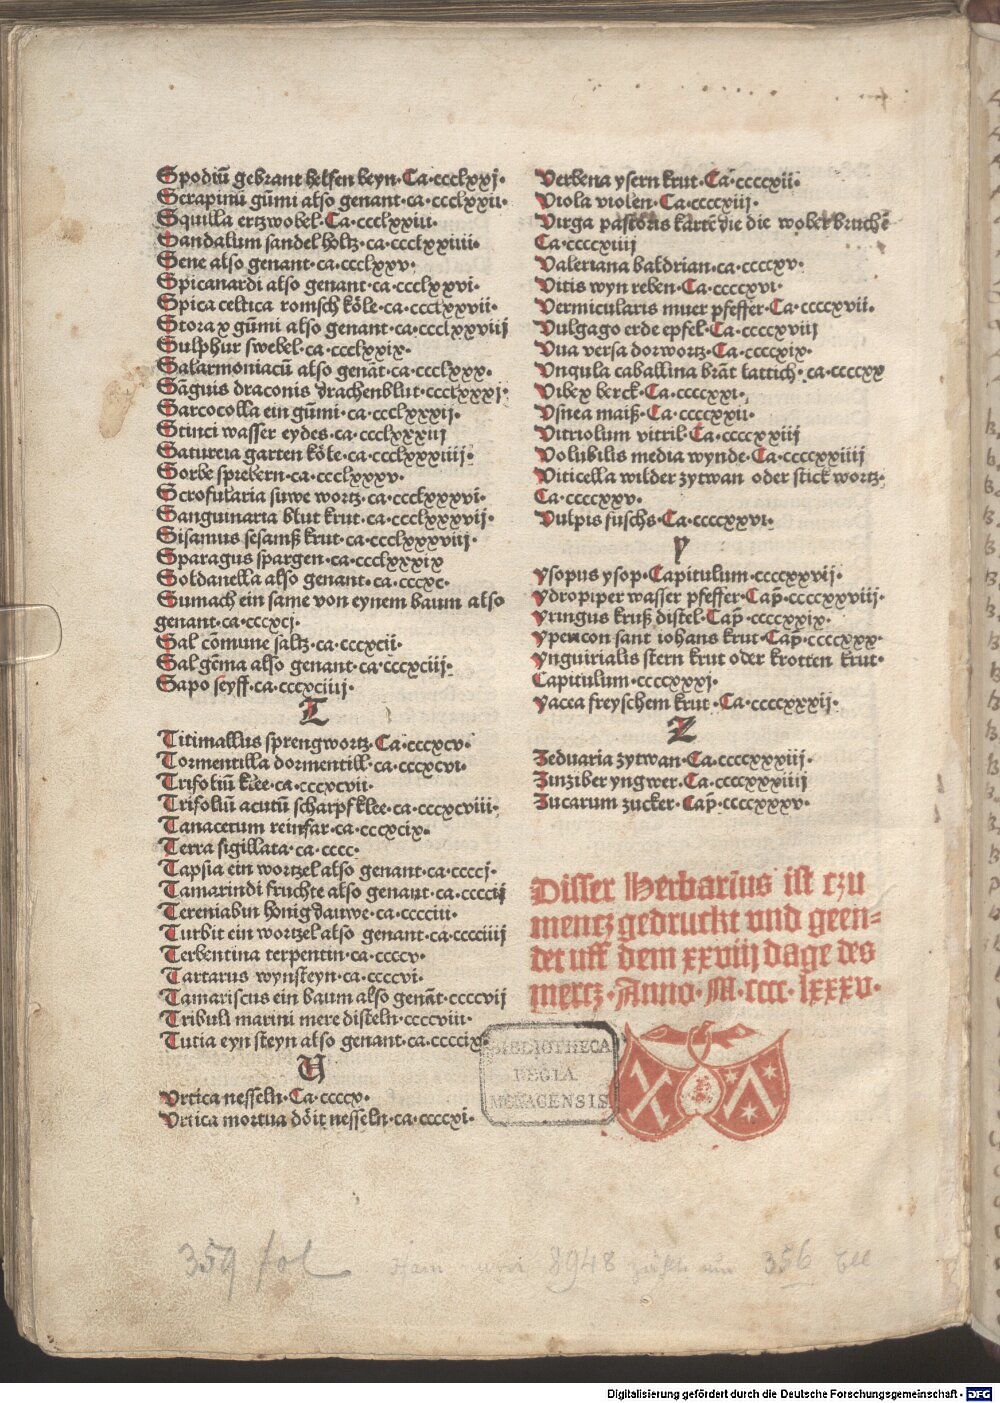 Spodiū gebrant helfen beyn·Ca·ccclxxj·
Serapinū gūmi also genant·ca·ccclxxii·
Squilla ertzwobel·Ca·ccclxxiii·
Sandalum sandel holtz·ca·ccclxxiiii·
Sene also genant·ca·ccclxxv·
Spicanardi also genant·ca·ccclxxvi·
Spica celtica romsch kőle·ca·ccclxxvii·
Storax gūmi also genant·ca·ccclxxviij
Sulphur swebel·ca·ccclxxix·
Salarmoniacū also genāt·ca·ccclxxx·
Sāguis draconis drachenblut·ccclxxxj·
Sarcocolla ein gūmi·ca·ccclxxxij·
Stinci wasser eydes·ca·ccclxxxiij
Satureia garten kőle·ca·ccclxxxiiij·
Sorbe sprebern·ca·ccclxxxv·
Scrofularia suwe wortz·ca·ccclxxxvi·
Sanguinaria blut krut·ca·ccclxxxvij·
Sisamus sesamß krut·ca·ccclxxxviij·
Sparagus spargen·ca·ccclxxxix
Soldanella also genant·ca·cccxc·
Sumach ein same von eynem baum also
genant·ca·cccxcj·
Sal cōmune saltz·ca·cccxcij·
Sal gēma also genant·ca·cccxciij·
Sapo seyff·ca·cccxciiij·
T
Titimallus sprengwortz·Ca·cccxcv·
Tormentilla dormentill·ca·cccxcvi·
Trifoliū klee·ca·cccxcvii·
Trifoliū acutū scharpf klee·ca·cccxcviii·
Tanacetum reinfar·ca·cccxcix·
Terra sigillata·ca·cccc·
Tapsia ein wortzel also genant·ccccj·
Tamarindi fruchte also genant·ca·ccccij
Tereniabin honigdauwe·ca·cccciii·
Turbit ein wortzel also genant·ca·cccciiij
Terbentina terpentin·ca·ccccv·
Tartarus wynsteyn·ca·ccccvi·
Tamariscus ein baum also genāt·ccccvij
Tribuli marini mere disteln·ccccviii·
Tutia eyn steyn also genant·ca·ccccix·
U
Vrtica nesseln·Ca·ccccx·
Vrtica mortua dőit nesseln·ca·ccccxi·
Verbena ysern krut·Ca·ccccxii·
Viola violen·Ca·ccccxiij·
Virga pastoris kartē die die wober bruchē
Ca·ccccxiiij
Valeriana baldrian·ca·ccccxv·
Vitis wyn reben·Ca·ccccxvi·
Vermicularis muer pfeffer·Ca·ccccxvii·
Vulgago erde epfel·Ca·ccccxviij
Vua versa dorwortz·Ca·ccccxix·
Vngula caballina brāt lattich·ca·ccccxx
Vibex berck·Ca·ccccxxi·
Vsnea maiß·Ca·ccccxxii·
Vitriolum vitril·Ca·ccccxxiij
Volubilis media wynde·Ca·ccccxxiiij
Viticella wilder zytwan oder stick wortz·
Ca·ccccxxv·
Vulpis fuschs·Ca·ccccxxvi·
Y
Ysopus ysop·Capitulum·ccccxxvij·
Ydropiper wasser pfeffer·Cap̄·ccccxxviij·
Yringus kruß distel·Cap̄·ccccxxix·
Ypericon sant iohans krut·Cap̄·ccccxxx·
Ynguirialis stern krut oder krotten krut·
Capitulum·ccccxxxj·
Yacea freyschem krut·Ca·ccccxxxij·
Z
Zeduaria zytwan·Ca·ccccxxxiij·
Zinziber yngwer·Ca·ccccxxxiiij
Zucarum zucker·Cap̄·ccccxxxv·
Disser Herbarius ist czu
mentz gedruckt und geen=
det uff dem xxviij dage des
mertz·Anno·M·cccc·lxxxv·
BIBLIOTHECA
REGIA
MONACENSIS
359 fol
Hain 8948 zählt nur 356 Bll
Digitalisierung gefördert durch die Deutsche Forschungsgemeinschaft - DFG